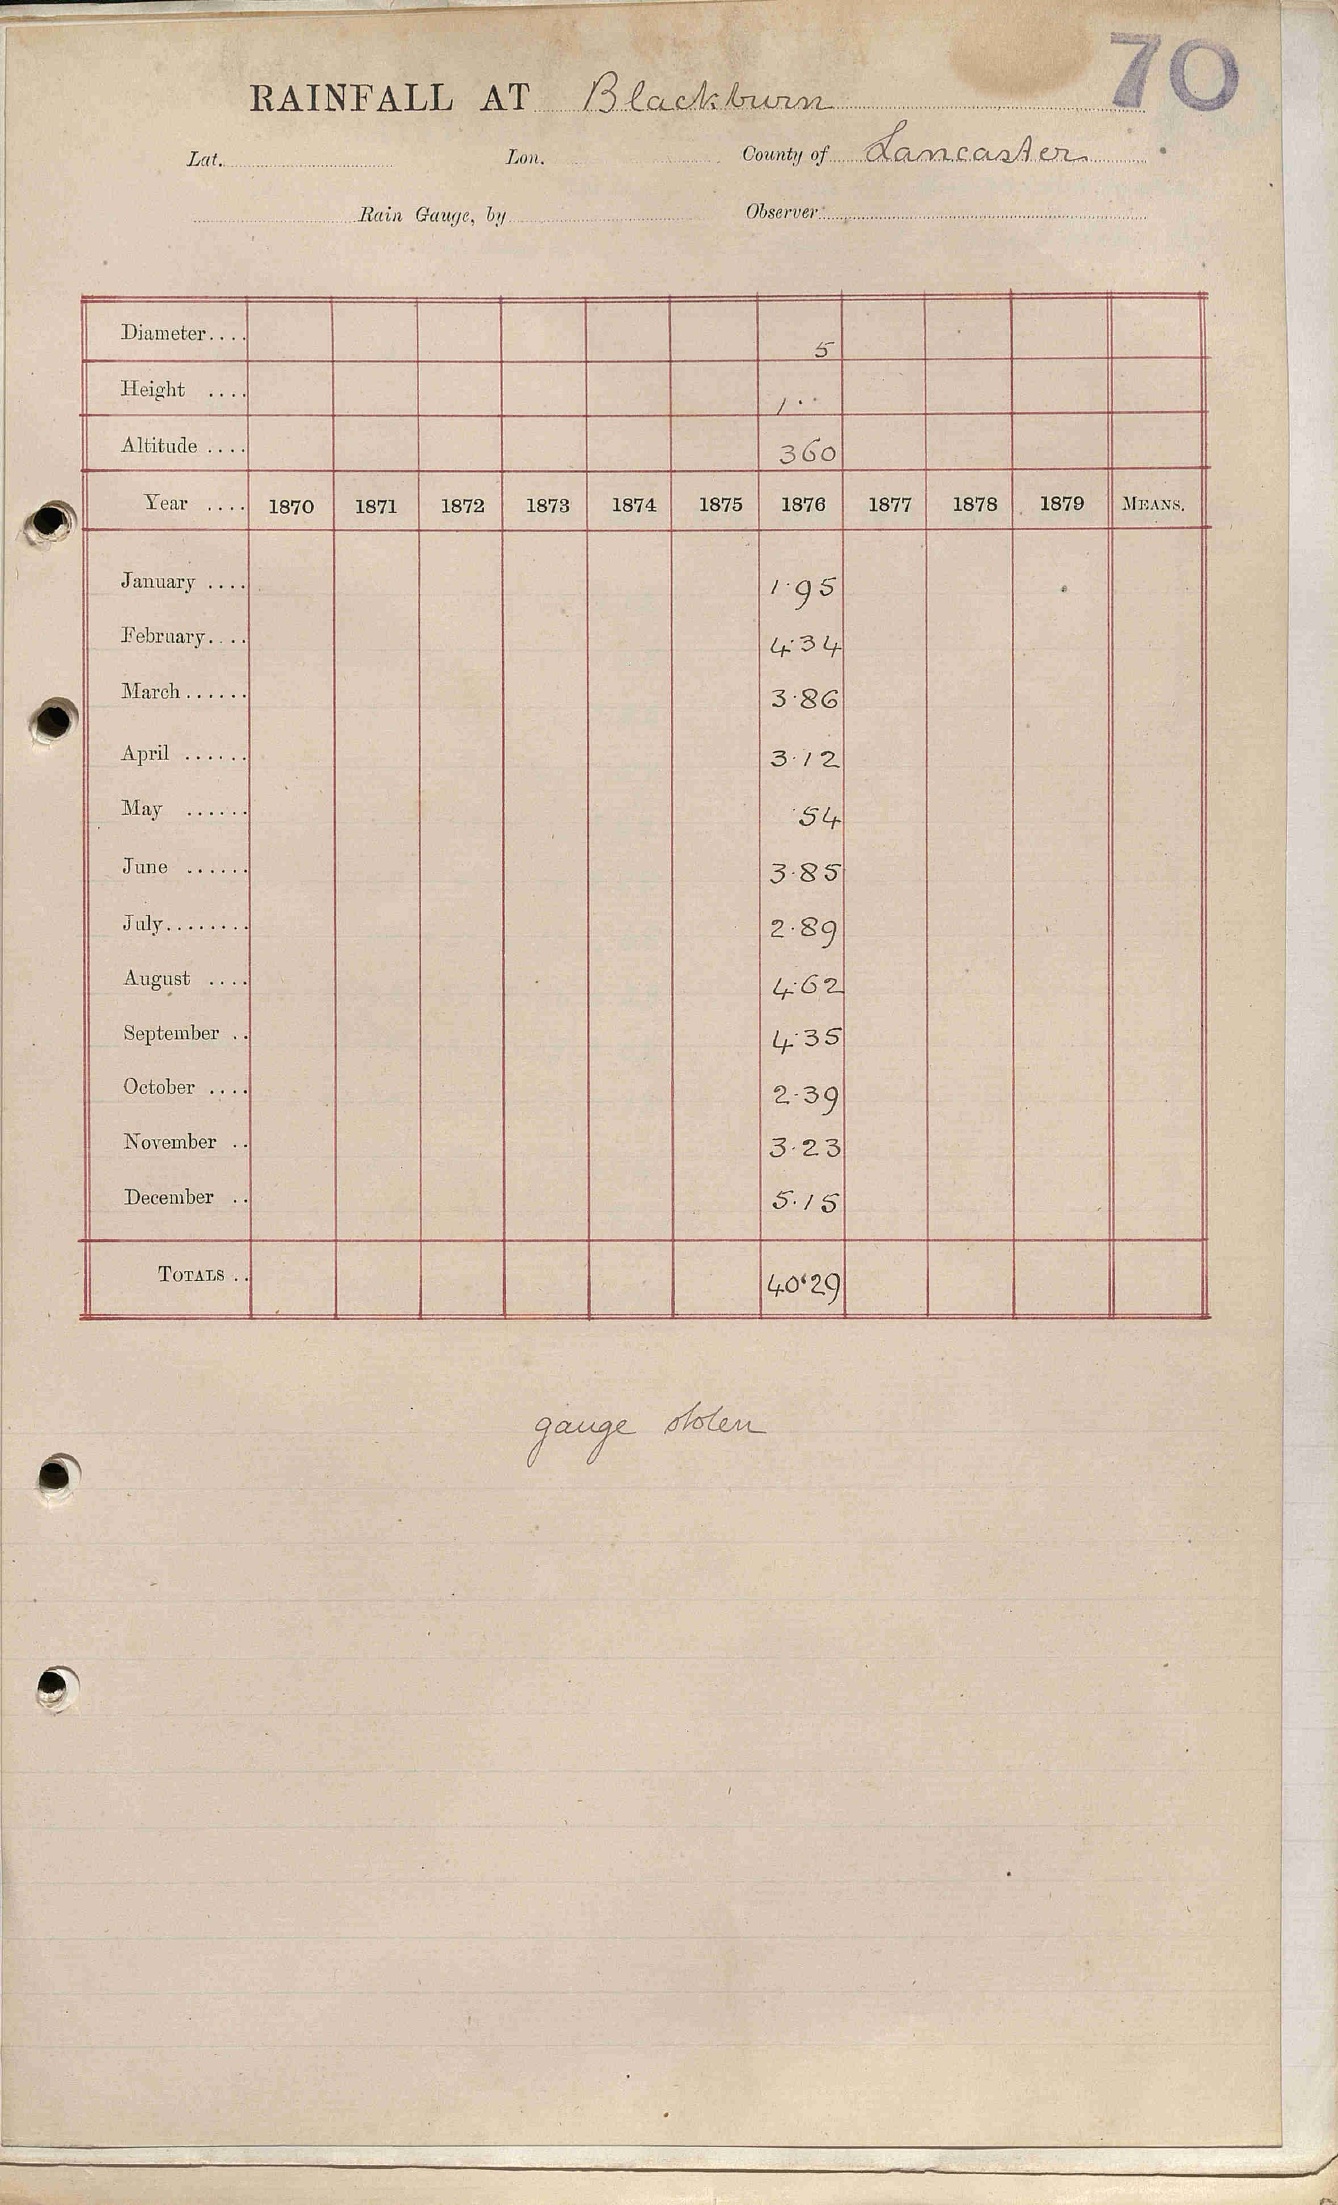 70
RAINFALL AT Blackburn
Lat. Lon. County of Lancaster
Rain Gauge, by Observer
Diameter.... 5
Height .... 1··
Altitude .... 360
Year .... 1870 1871 1872 1873 1874 1875 1876 1877 1878 1879 MEANS.
January .... 1·95
February.... 4·34
March...... 3·86
April ...... 3·12
May ...... ·54
June ...... 3·85
July........ 2·89
August .... 4·62
September .. 4·35
October .... 2·39
November .. 3·23
December .. 5·15
TOTALS .. 40·29
gauge stolen